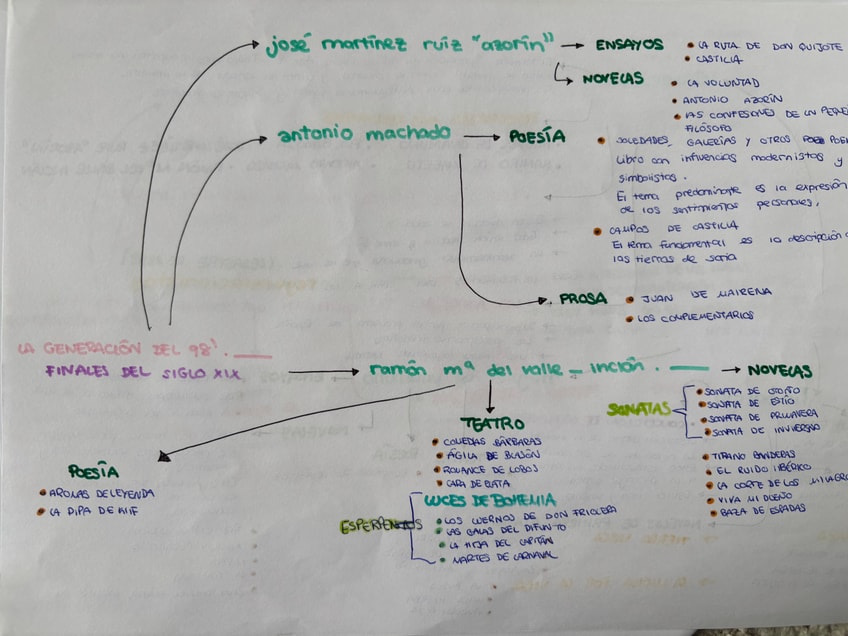 josé martínez ruiz "azorín"
ENSAYOS
LA RUTA DE DON QUIJOTE
CASTILLA
NOVELAS
LA VOLUNTAD
ANTONIO AZORÍN
LAS CONFESIONES DE UN PEQUE
FILÓSOFO
antonio machado
POESÍA
SOLEDADES, GALERÍAS Y OTROS POEM
Libro con influencias modernistas y
simbolistas.
El tema predominante es la expresión
de los sentimientos personales.
CAMPOS DE CASTILLA
El tema fundamental es la descripción d
las tierras de soria
PROSA
JUAN DE MAIRENA
LOS COMPLEMENTARIOS
LA GENERACIÓN DEL 98'.
FINALES DEL SIGLO XIX
ramón mª del valle - inclán.
NOVELAS
SONATAS
SONATA DE OTOÑO
SONATA DE ESTÍO
SONATA DE PRIMAVERA
SONATA DE INVIERNO
TIRANO BANDERAS
EL RUIDO IBÉRICO
LA CORTE DE LOS MILAGR
VIVA MI DUEÑO
BAZA DE ESPADAS
TEATRO
COMEDIAS BÁRBARAS
ÁGILA DE BLASÓN
ROMANCE DE LOBOS
CARA DE PLATA
LUCES DE BOHEMIA
ESPERPENTOS
LOS CUERNOS DE DON FRIOLERA
LAS GALAS DEL DIFUNTO
LA HIJA DEL CAPITÁN
MARTES DE CARNAVAL
POESÍA
AROMAS DE LEYENDA
LA PIPA DE KIF